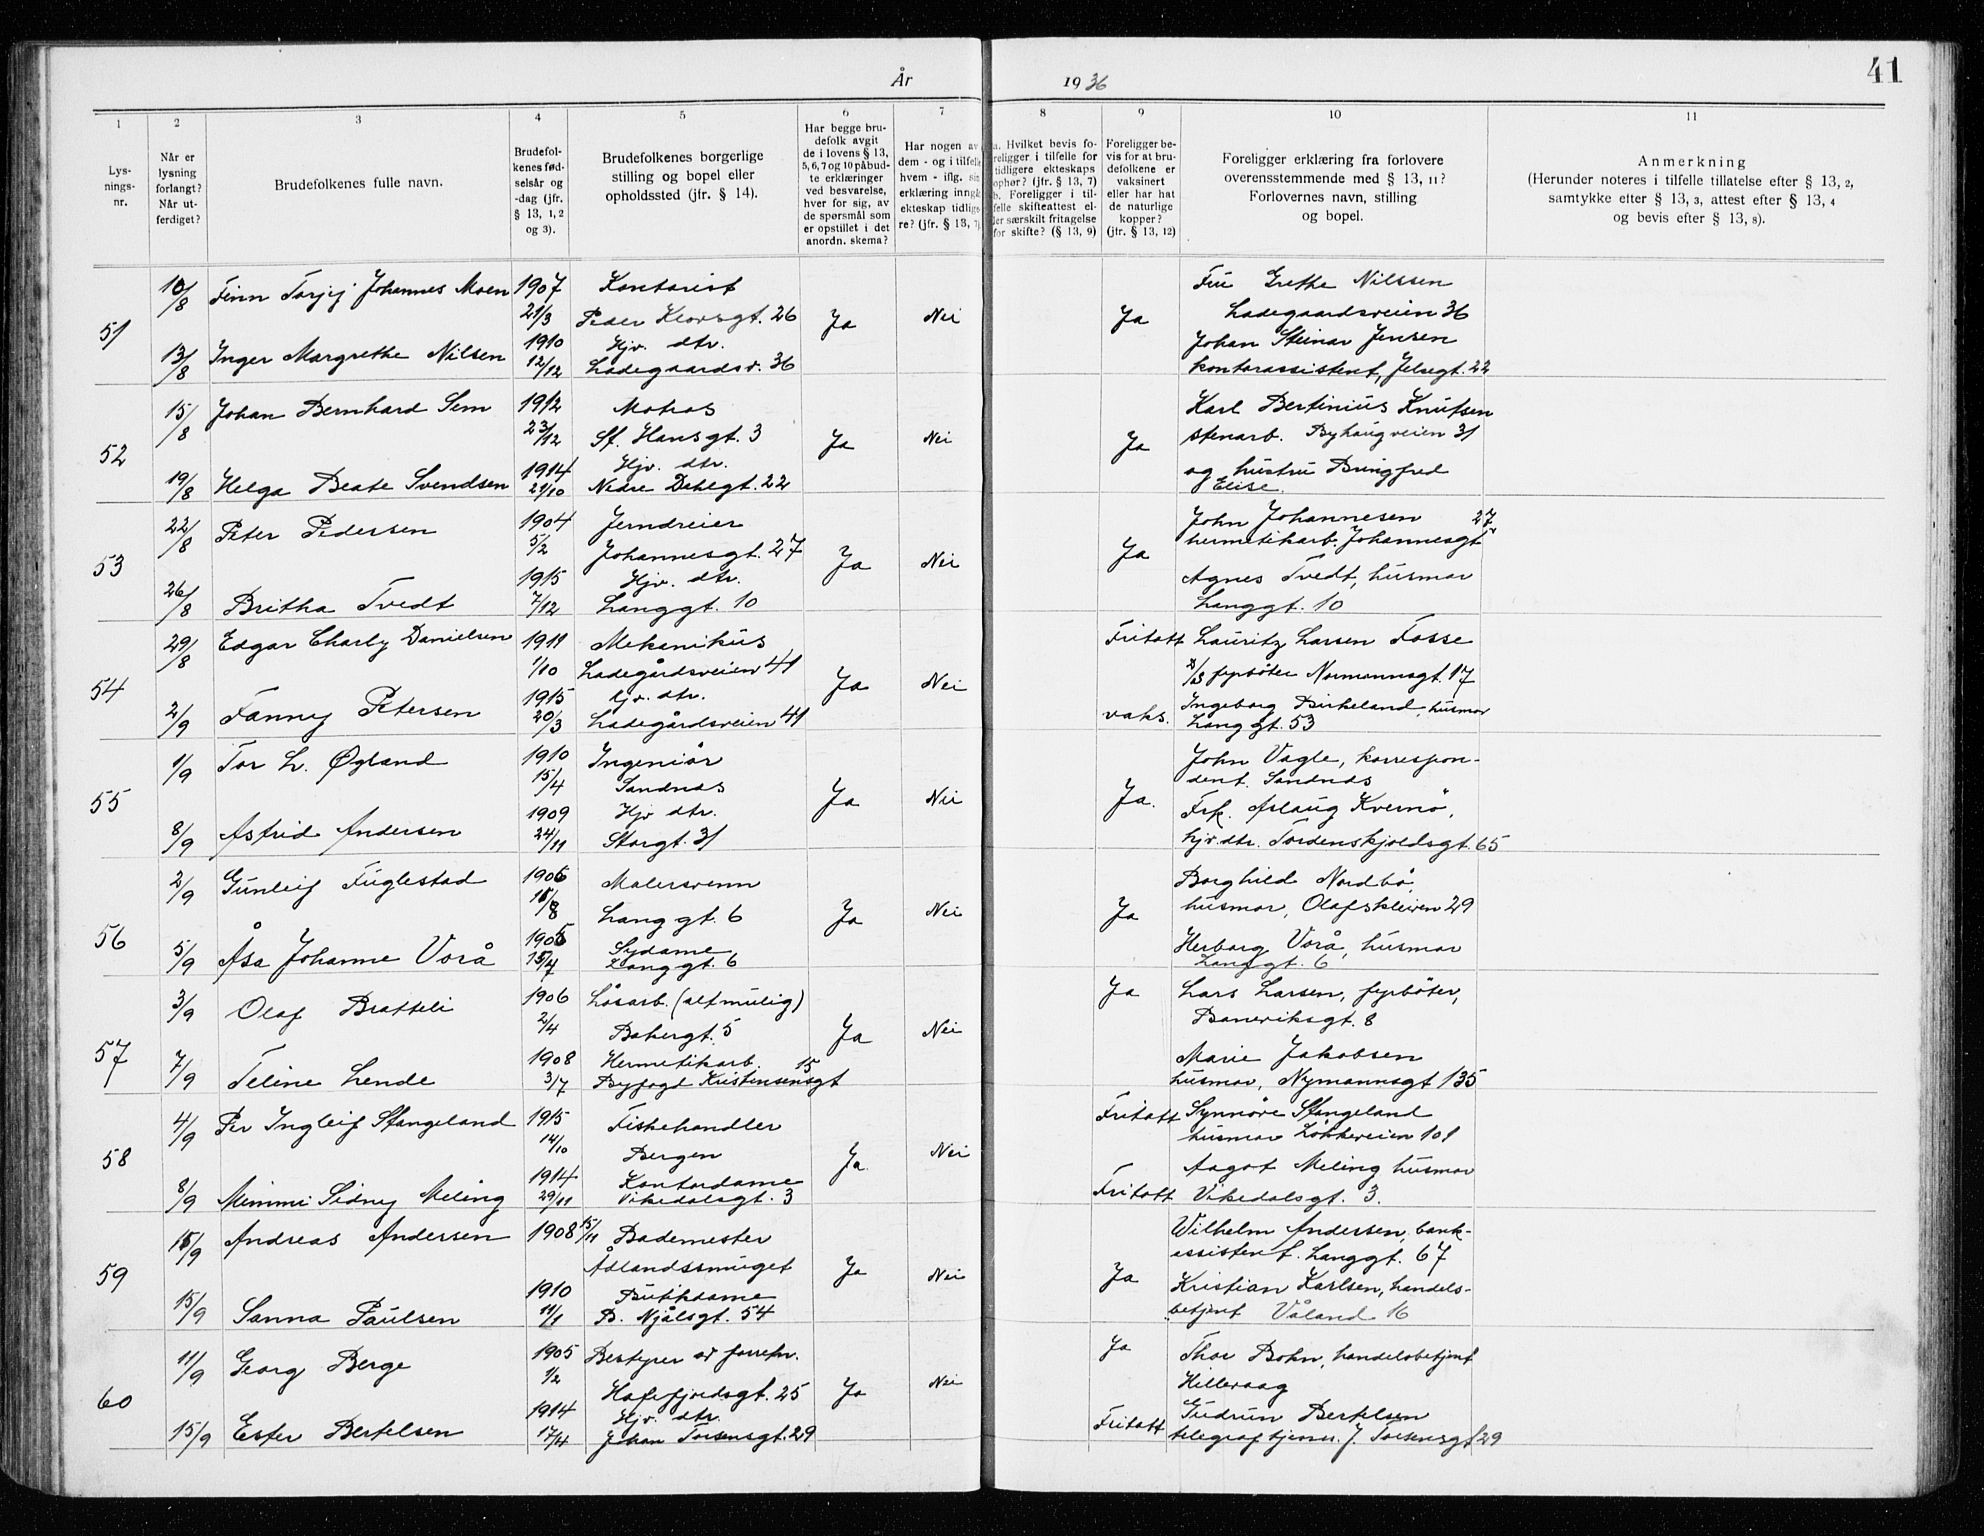 År 1936
41
1 2 3 4 5 6 7 8 9 10 11
Lys-
nings-
nr.
Når er
lysning
forlangt?
Når ut-
ferdiget?
Brudefolkenes fulle navn.
Brudefol-
kenes fød-
selsår og
-dag (jfr.
§ 13, 1, 2
og 3).
Brudefolkenes borgerlige
stilling og bopel eller
opholdssted (jfr. § 14).
Har begge bru-
defolk avgit
de i lovens § 13,
5, 6, 7 og 10 påbud-
te erklæringer
ved besvarelse,
hver for sig, av
de spørsmål som
er opstillet i det
anordn. skema?
Har nogen av
dem - og i tilfelle
hvem - iflg. sin
erklæring inngå
ekteskap tidlige-
re? (jfr. § 13, 7)
a. Hvilket bevis fo-
religger i tilfelle for
tidligere ekteskaps
ophør? (jfr. § 13, 7)
b. Foreligger i til-
felle skifteattest el-
ler særskilt fritagelse
for skifte? (§ 13, 9)
Foreligger be-
vis for at bru-
defolkene er
vaksinert
eller har hat
de naturlige
kopper?
(jfr. § 13, 12)
Foreligger erklæring fra forlovere
overensstemmende med § 13, 11?
Forlovernes navn, stilling
og bopel.
Anmerkning
(Herunder noteres i tilfelle tillatelse efter § 13, 2,
samtykke efter § 13, 3, attest efter § 13, 4
og bevis efter § 13, 8).
51
10/8 Finn Torjij Johannes Moen 1907 Kontorist Fru Grethe Nilssen
21/3 Peder Klowsgt. 26 Ja Nei Ja Ladegaardsveien 36
13/8 Inger Margrethe Nilsen 1910 Hjv. dtr. Johan Steinar Jensen
12/12 Ladegaardsv. 36 kontorassistent, Jelsegt. 22
52
15/8 Johan Bernhard Sem 1912 Matros Karl Bertinius Knutsen
23/12 St. Hansgt. 3 Ja Nei Ja stenarb. Byhaugveien 31
19/8 Helga Beate Svendsen 1914 Hjv. dtr. og hustru Bringfred
21/10 Nedre Dahlgt. 22 Elise.
53
22/8 Peter Pedersen 1904 Jerndreier John Johannesen 27
5/2 Johannesgt. 27 Ja Nei Ja hermetikarb. Johannesgt
26/8 Britha Tvedt 1915 Hjv. dtr. Agnes Tvedt, husmor
7/12 Langgt. 10 Langgt. 10
54
29/8 Edgar Charly Danielsen 1911 Mekanikus Fritatt Lauritz Larsen Fosse
1/10 Ladegårdsveien 41 Ja Nei fyrbøter Normannsgt. 17
2/9 Fanny Petersen 1915 hjv. dtr. vaks. Ingeborg Birkeland, husmor
20/3 Ladegårdsveien 41 Langgt. 53
55
1/9 Tor L. Øgland 1910 Ingeniør John Vagle, korrespon-
15/4 Sandnes Ja Nei Ja. dent. Sandnes
8/9 Astrid Andersen 1909 Hjv dtr. Frk. Aslaug Kvernø,
24/11 Storgt. 31 hjv. dtr. Tordenskjoldsgt. 65
56
2/9 Gunleif Fuglestad 1906 Malersvenn Borghild Nordbø,
/8 Langgt. 6 Ja Nei Ja husmor, Olafskleiven 29
5/9 Åsa Johanne Vorå 1905 Sydame Herborg Vorå, husmor
15/4 Langgt. 6 Langgt. 6
57
3/9 Olaf Bratteli 1906 Løsarb. (altmulig) Ja Lars Larsen, fyrbøter,
2/4 Bakergt. 5 Ja Nei Baneviksgt. 8
7/9 Teline Lende 1908 Hermetikarb. Marie Jakobsen
3/7 Byfogd Kristensensgt 15 husmor, Nymannsgt 135
58
4/9 Per Ingleif Stangeland 1915 Fiskehandler Fritatt Synnøve Stangeland
14/10 Bergen Ja Nei husmor Løkkeveien 101
8/9 Mimmi Sidney Meling 1914 Kontordame Fritatt Aagot Meling husmor
29/11 Vikedalsgt. 3 Vikedalsgt. 3.
59
/9 Andreas Andersen 1908 15/11 Bademester Wilhelm Andersen, bank-
Ådlandssmuget Ja Nei Ja assistent. Langgt. 67
15/9 Sanna Paulsen 1910 Butikdame Kristian Karlsen, handels-
11/1 B. Njålsgt. 54 betjent Våland 16
60
11/9 Georg Berge 1905 Bestyrer av forretn. Ja Thor Bohn, handelsbetjent
1/2 Hafrsfjordsgt. 25 Ja Nei Hillevaag
15/9 Ester Bertelsen 1914 Hjv. dtr. Fritatt Gudrun Bertelsen
17/4 Johan Torsensgt. 29 telegraftjener. J. Torsensgt 29